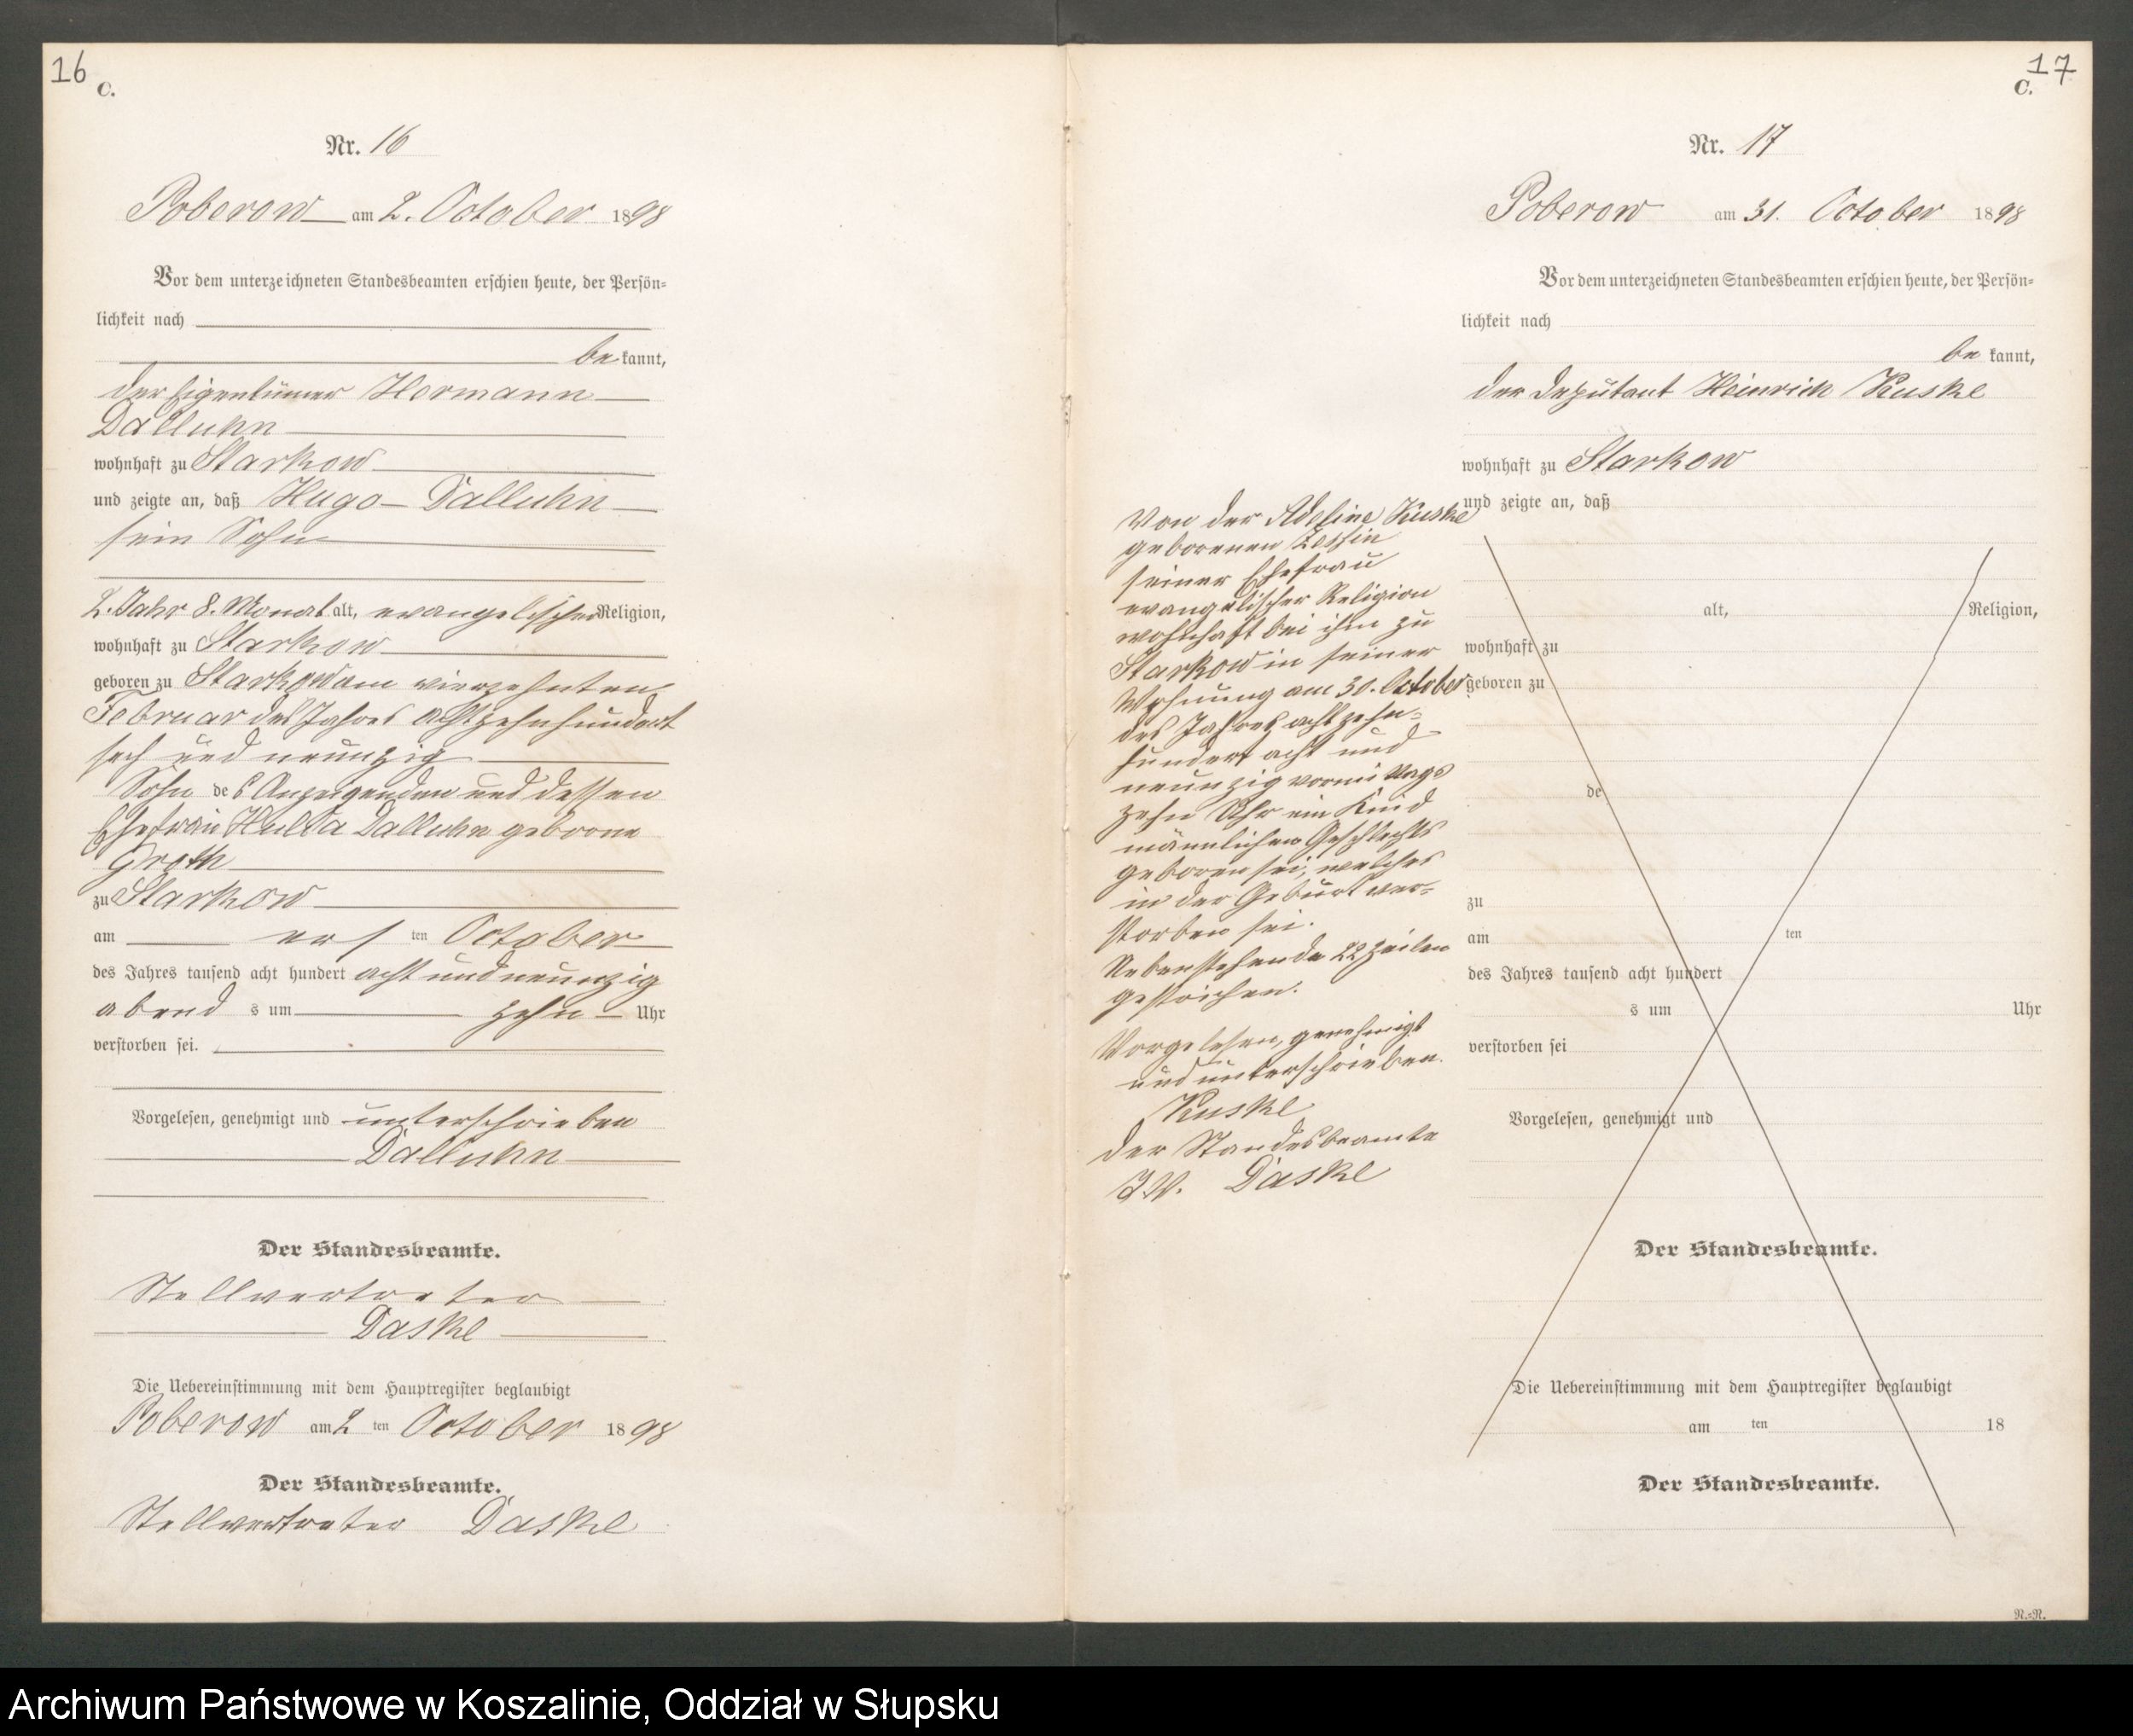 16
C.
Nr. 16
Poberow am 2. October 1898
Vor dem unterzeichneten Standesbeamten erschien heute, der Persön-
lichkeit nach
be kannt,
der Eigentümer Hermann
Dalluhn
wohnhaft zu Starkow
und zeigte an, daß Hugo Dalluhn
sein Sohn
2. Jahr 8. Monat alt, evangelischer Religion,
wohnhaft zu Starkow
geboren zu Starkow am vierzehnten
Februar des Jahres achtzehnhundert
sech und neunzig
Sohn des Anzeigenden und dessen
Ehefrau Hulda Dalluhn geborne
Groth
zu Starkow
am ersten October
des Jahres tausend acht hundert acht und neunzig
abend s um zehn Uhr
verstorben sei.
Vorgelesen, genehmigt und unterschrieben
Dalluhn
Der Standesbeamte.
Stellvertreter
Daske
Die Uebereinstimmung mit dem Hauptregister beglaubigt
Poberow am 2 ten October 1898
Der Standesbeamte.
Stellvertreter Daske
17
C.
Nr. 17
Poberow am 31. October 1898
Vor dem unterzeichneten Standesbeamten erschien heute, der Persön-
lichkeit nach
be kannt,
der Deputant Heinrich Kuske
wohnhaft zu Starkow
und zeigte an, daß
Von der Adeline Kuske
geborenen Zessin
seiner Ehefrau
evangelischer Religion
wohnhaft bei ihm zu
Starkow in seiner
Wohnung am 30. October
des Jahres achtzehn-
hundert acht und
neunzig vormittags
zehn Uhr ein Kind
männlichen Geschlechts
geboren sei, welches
in der Geburt ver-
storben sei.
Nebenstehende 22 Zeilen
gestrichen.
Vorgelesen, genehmigt
und unterschrieben.
Kuske
Der Standesbeamte
J.V. Daske
alt, Religion,
wohnhaft zu
geboren zu
de
zu
am ten
des Jahres tausend acht hundert
s um Uhr
verstorben sei
Vorgelesen, genehmigt und
Der Standesbeamte.
Die Uebereinstimmung mit dem Hauptregister beglaubigt
am ten 18
Der Standesbeamte.
N.-N.
Archiwum Państwowe w Koszalinie, Oddział w Słupsku